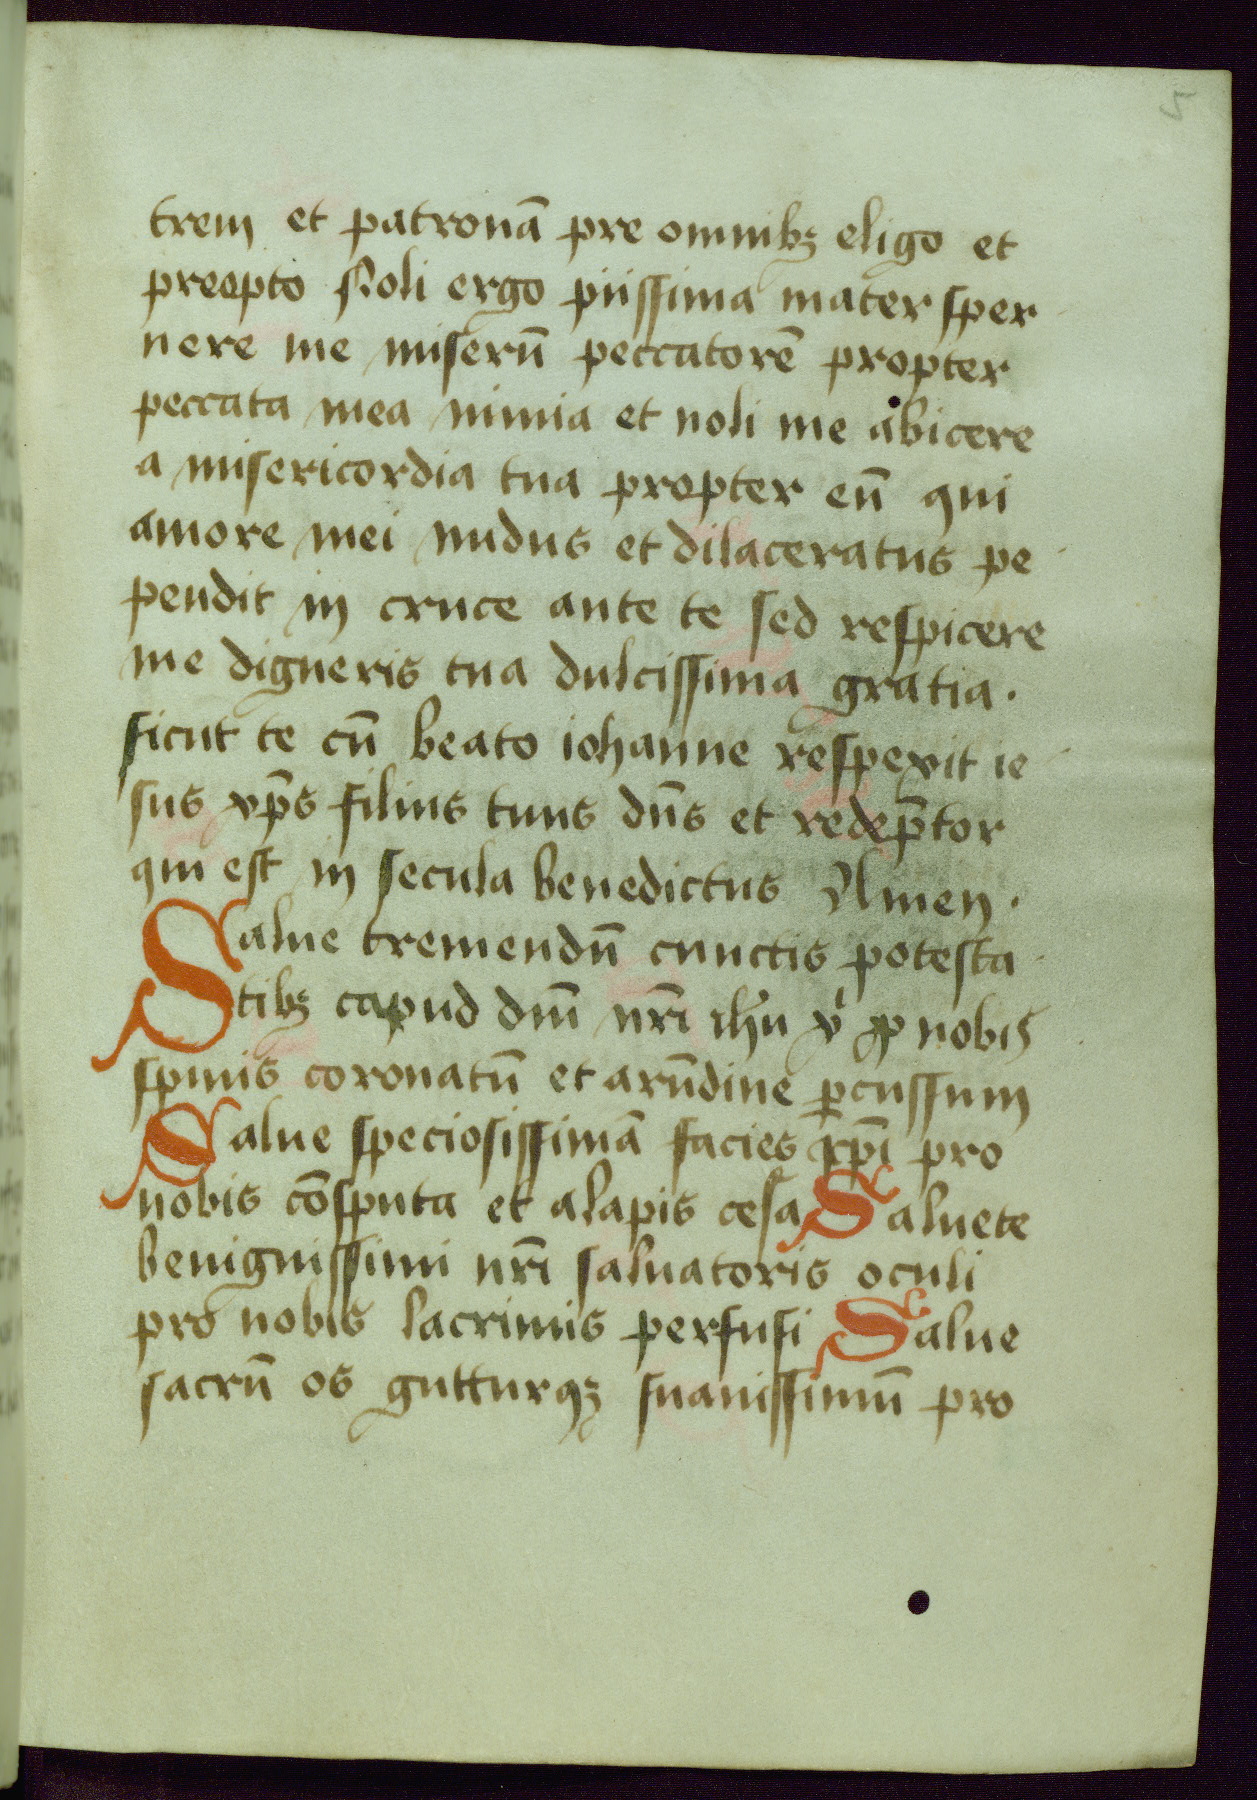 5
trem et patronā pre omnibꝫ eligo et
preopto Noli ergo piissima mater sper
nere me miserū peccatorē propter
peccata mea nimia et noli me abicere
a misericordia tua propter eū qui
amore mei nudus et dilaceratus pe
pendit in cruce ante te sed respicere
me digneris tua dulcissima gratia.
sicut te cū beato iohanne respexit ie
sus xp̄s filius tuus dn̄s et redēptor
qui est in secula benedictus Amen.
Salue tremendū cunctis potesta
tibꝫ capud dn̄i nr̄i ih̄u xͥ ꝓ nobis
spinis coronatū et arūdine ꝑcussum
Salue speciosissimā facies xp̄i pro
nobis cōsputa et alapis cesa Saluete
benignissimi nr̄i saluatoris oculi
pro nobis lacrimis perfusi Salue
sacrū os gutturqꝫ suauissimū pro